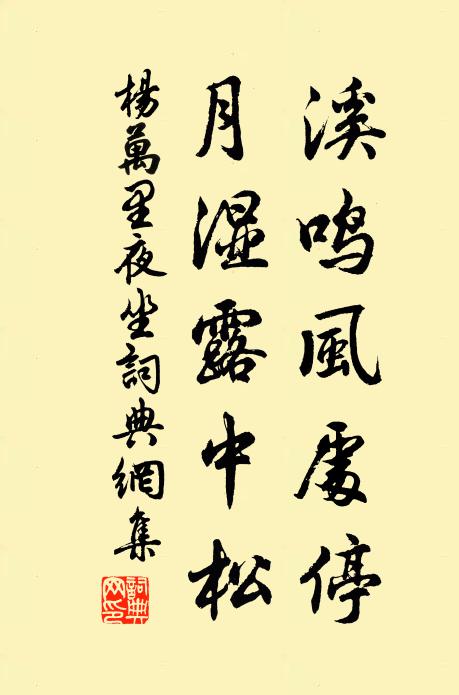 溪鳴風處停
月湿露中松
楊萬里夜坐詞典網集
詞典网印